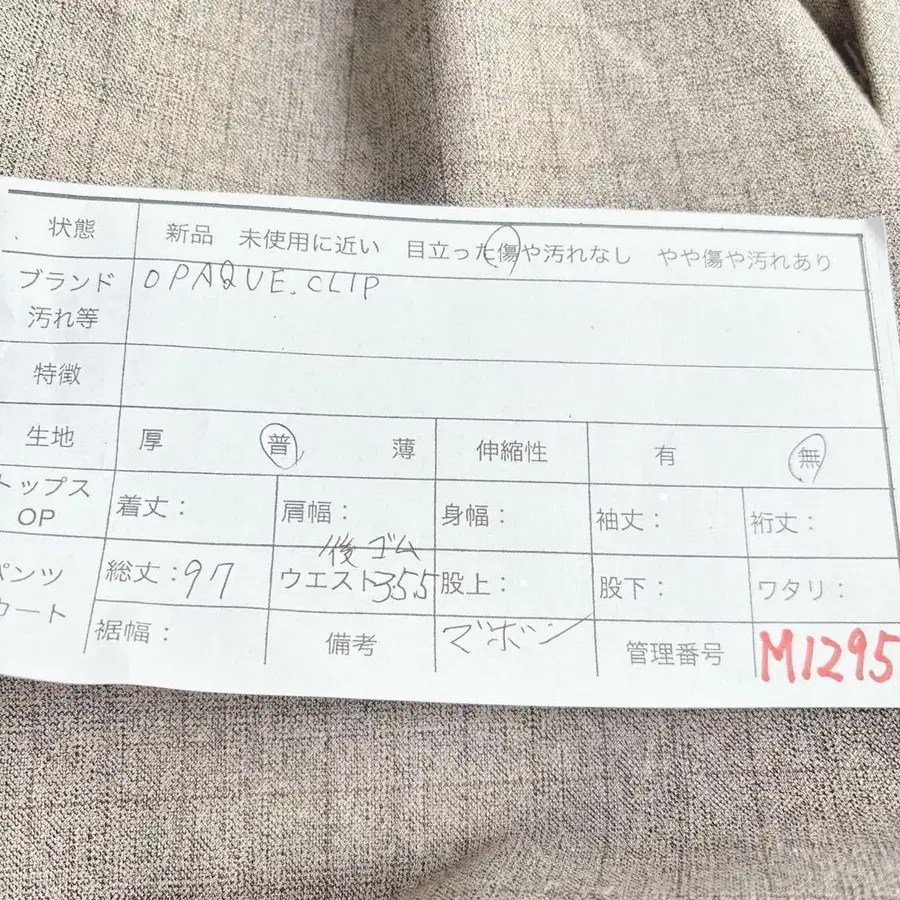 状態 新品 未使用に近い 目立った傷や汚れなし やや傷や汚れあり
ブランド OPAQUE.CLIP
汚れ等
特徴
生地 厚 普 薄 伸縮性 有 無
トップス 着丈: 肩幅: 身幅: 袖丈: 裄丈:
OP
後ゴム
パンツ 総丈:97 ウエスト35.5 股上: 股下: ワタリ:
カート 裾幅: 備考 管理番号 M1295